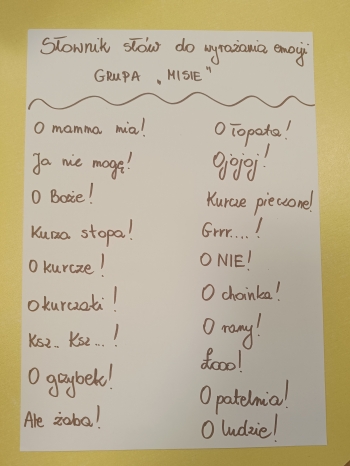 Słownik słów do wyrażania emocji
GRUPA „MISIE"
O mamma mia!
Ja nie mogę!
O Boże!
Kurza stopa!
O kurcze!
O kurczaki!
Ksz.. Ksz...!
O grzybek!
Ale żaba!
O łopata!
Ojojoj!
Kurcze pieczone!
Grrr....!
O NIE!
O choinka!
O rany!
Łooo!
O patelnia!
O ludzie!